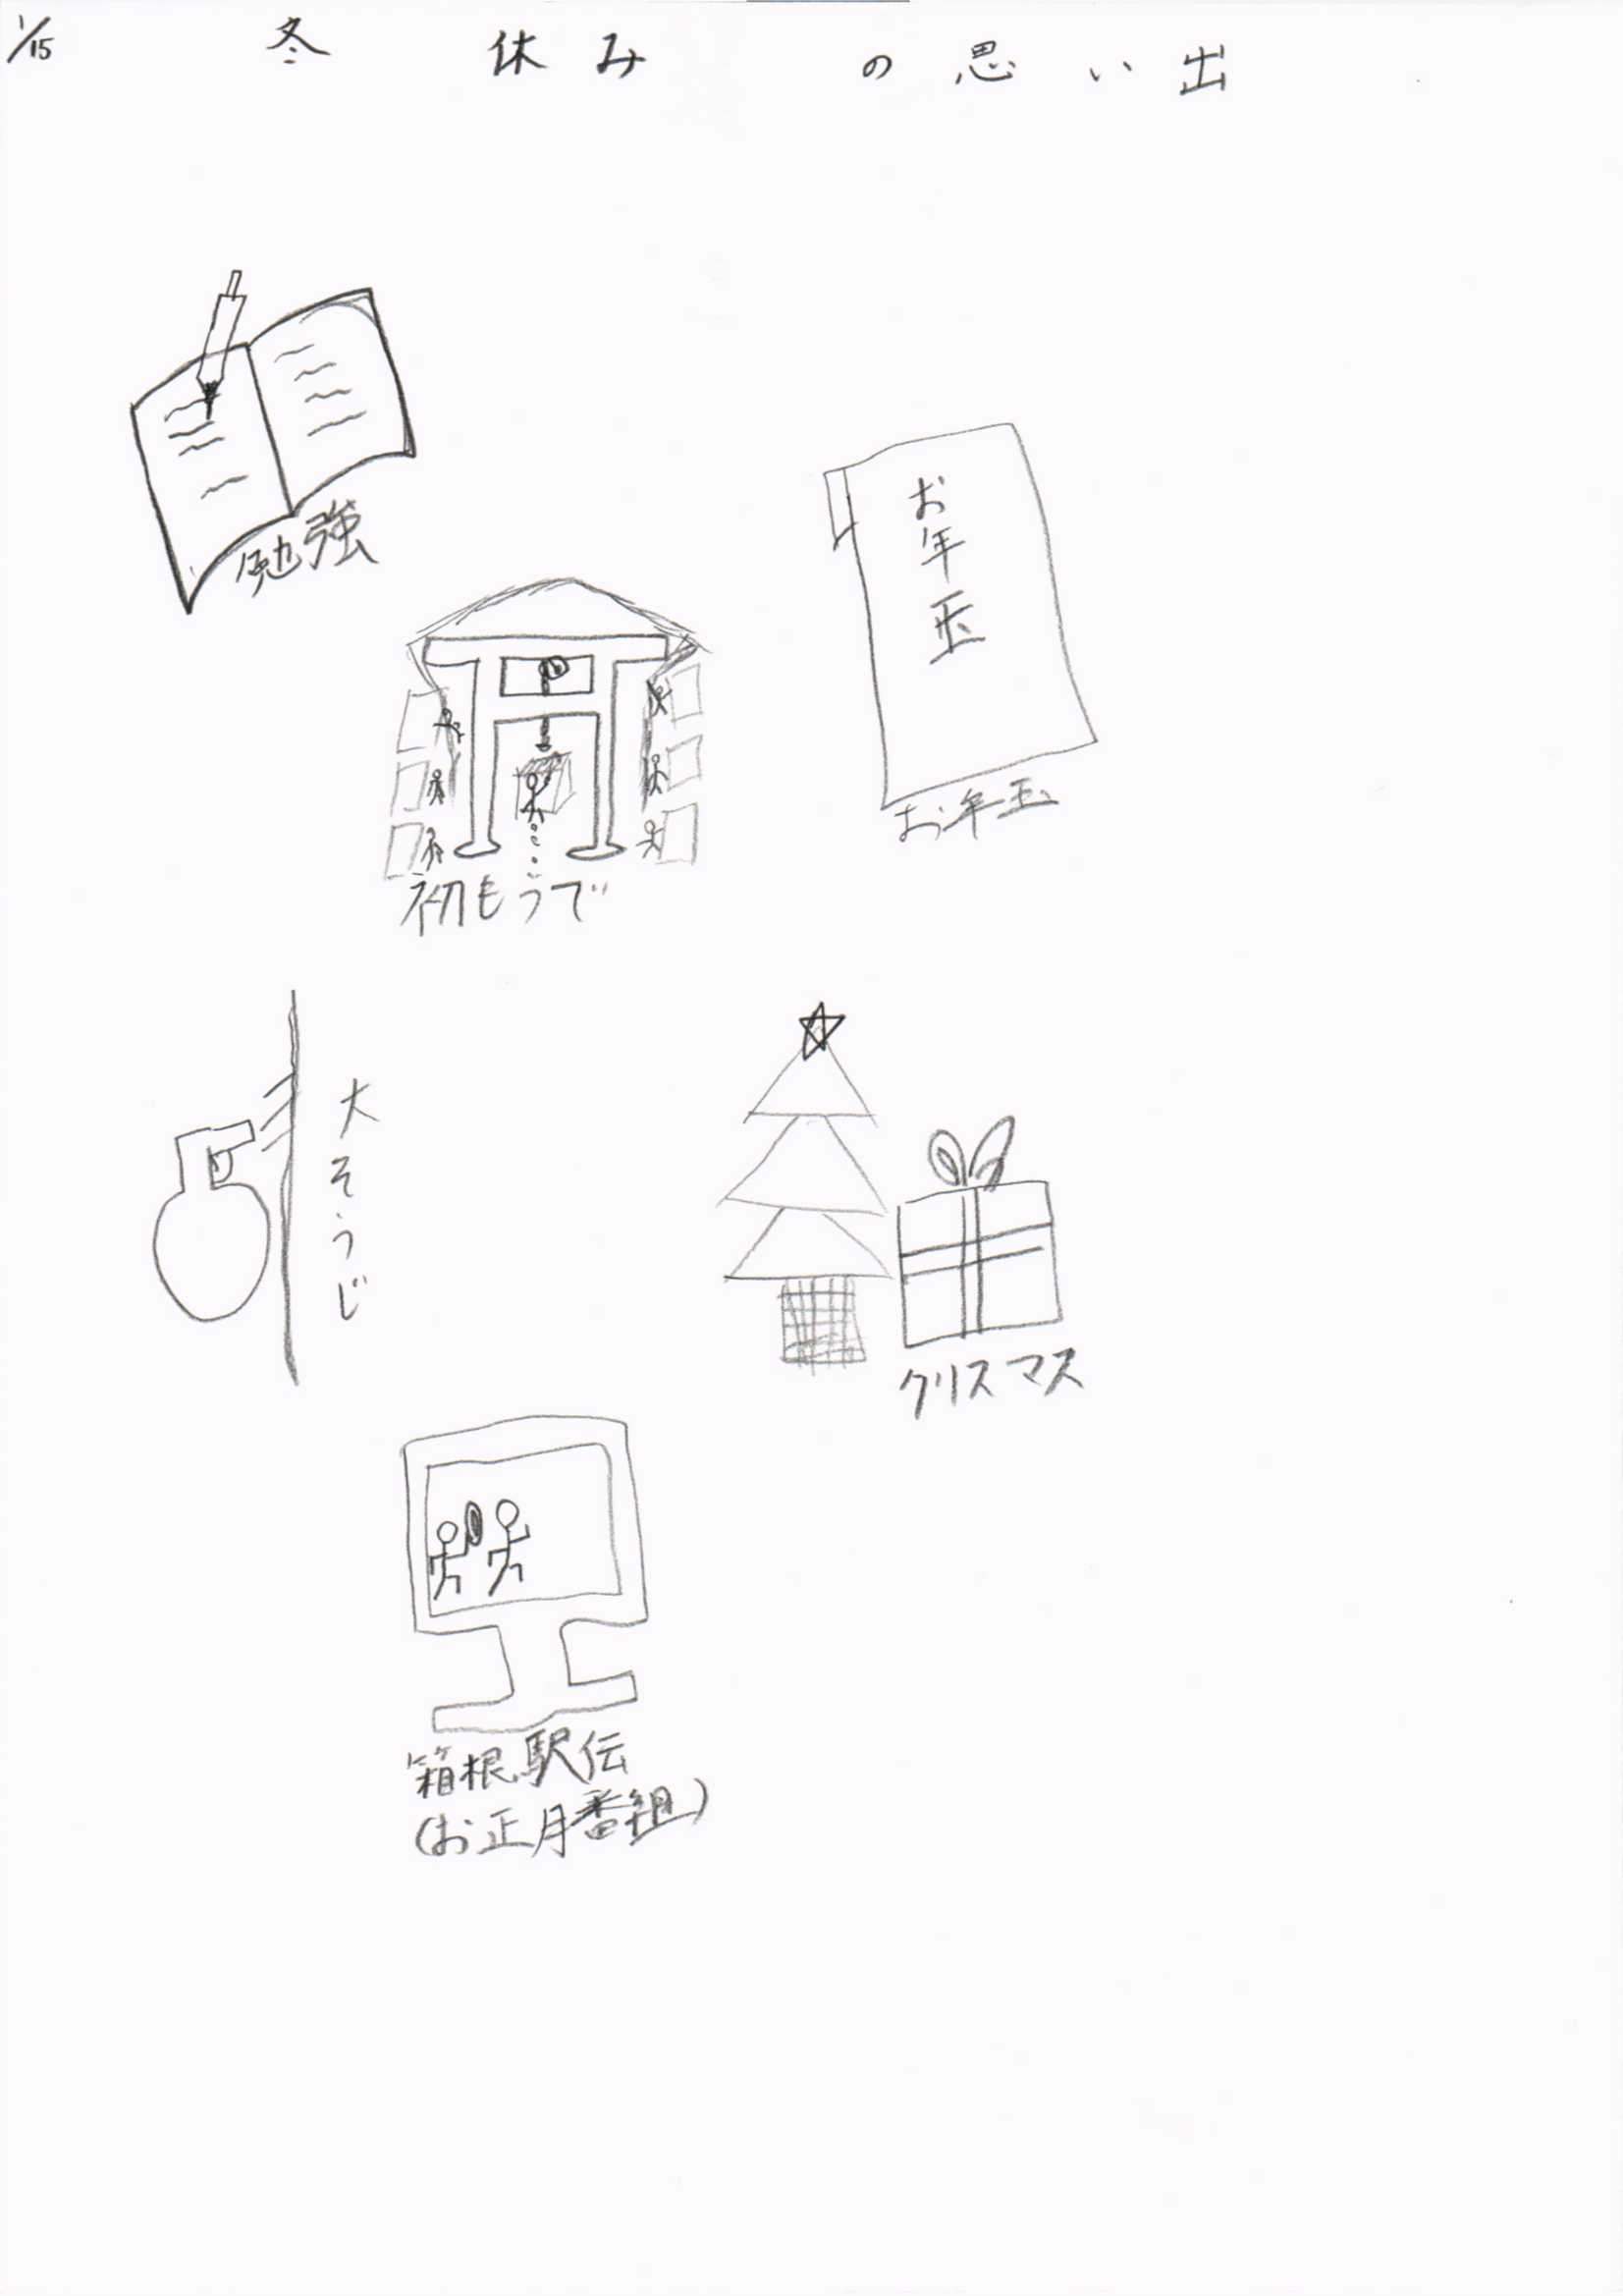 1/15
冬休みの思い出
勉強
お年玉
お年玉
初もうで
大そうじ
クリスマス
箱根駅伝
(お正月番組)